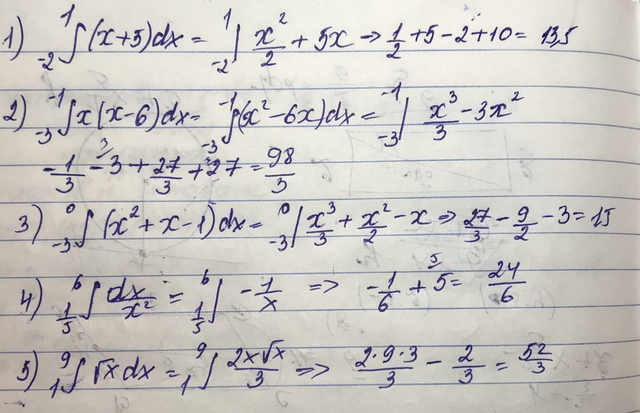 1) -2∫1 (x+5)dx = -2|1 x²/2 + 5x → 1/2 + 5 - 2 + 10 = 13,5
2) -3∫-1 x(x-6)dx = -3∫-1 (x² - 6x)dx = -3|-1 x³/3 - 3x²
-1/3 - 3 + 27/3 + 27 = 98/3
3) -3∫0 (x² + x - 1)dx = -3|0 x³/3 + x²/2 - x => 27/3 - 9/2 - 3 = 1,5
4) 1/5∫6 dx/x² = 1/5∫6 -1/x => -1/6 + 5 = 24/6
5) 1∫9 √x dx = 1∫9 2x√x/3 => 2·9·3/3 - 2/3 = 52/3